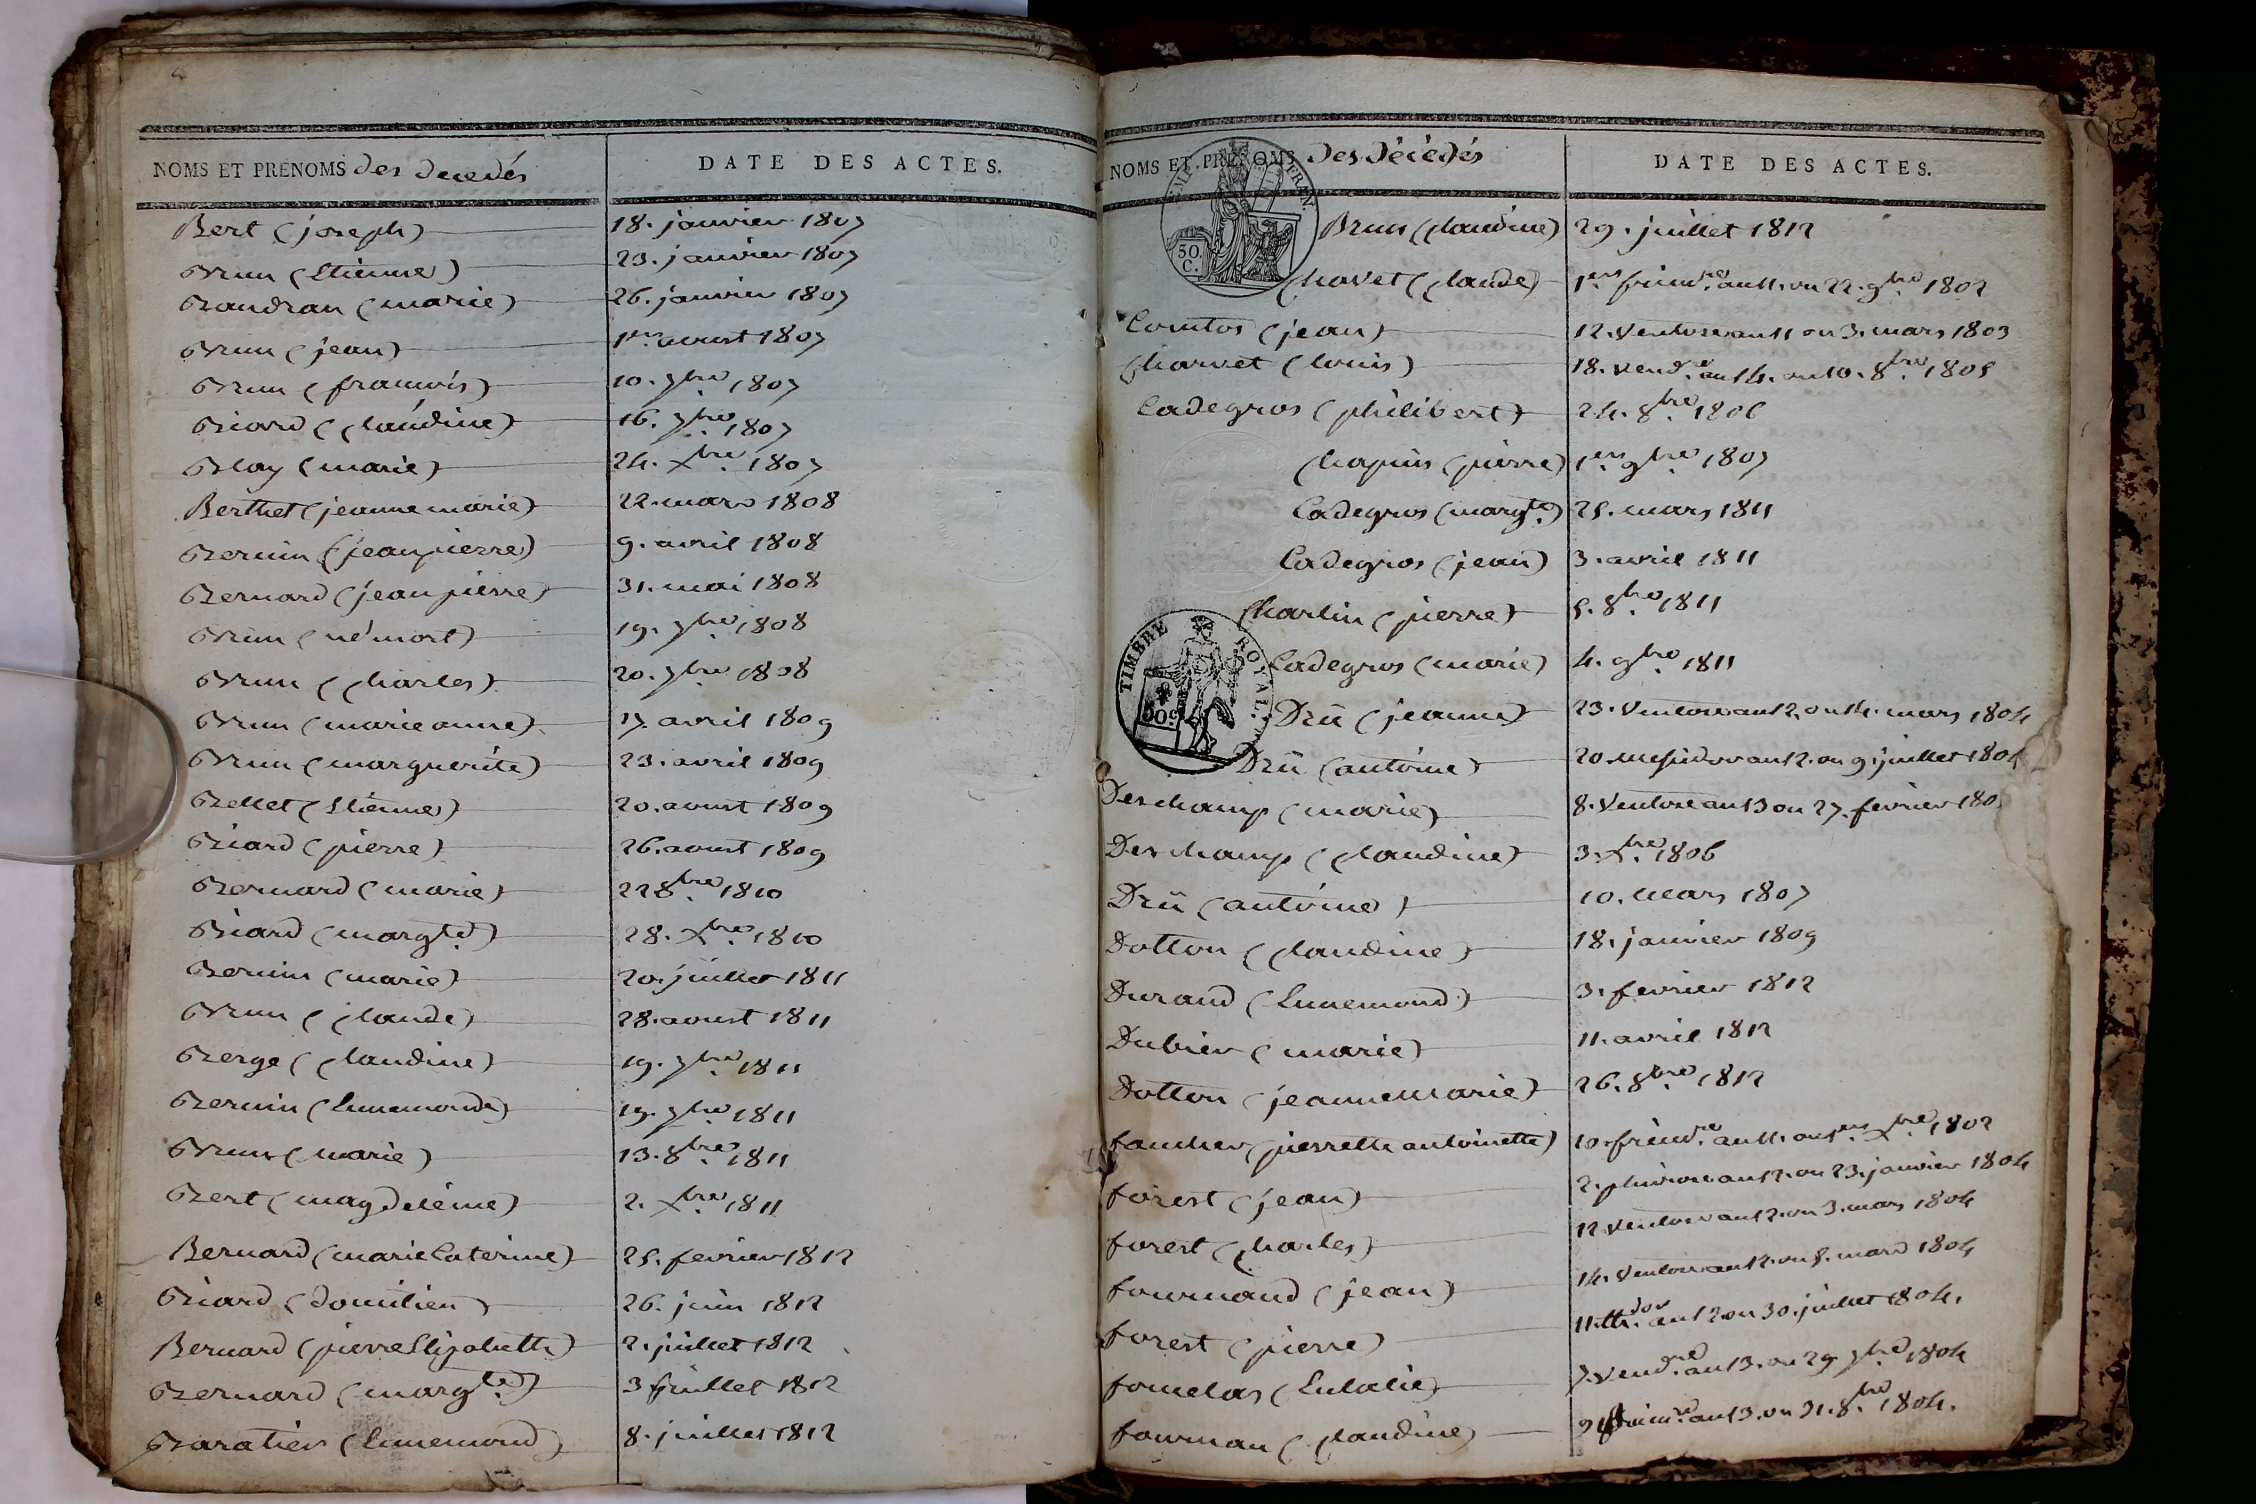 NOMS ET PRENOMS des decedés DATE DES ACTES.
Bert (joseph) 18. janvier 1807
Brun (Etienne) 23. janvier 1807
Baudran (marie) 26. janvier 1807
Brun (jean) 1er aoust 1807
Brun (francois) 10. 7bre 1807
Biard (Claudine) 16. 7bre 1807
Blay (marie) 24. Xbre 1807
Berthet (jeanne marie) 22. mars 1808
Bernin (jean pierre) 9. avril 1808
Bernard (jean pierre) 31. mai 1808
Brun (né mort) 19. 7bre 1808
Brun (Charles) 20. 7bre 1808
Brun (marie anne) 17 avril 1809
Brun (marguerite) 23. avril 1809
Bellet (Etienne) 20. aoust 1809
Biard (pierre) 26. aoust 1809
Bernard (marie) 22 8bre 1810
Biard (margte) 28. Xbre 1810
Bernin (marie) 20. juillet 1811
Brun (Claude) 28. aoust 1811
Berge (Claudine) 19. 7bre 1811
Bernin (Ennemonde) 19. 7bre 1811
Brun (marie) 13. 8bre 1811
Bert (magdeleine) 2. Xbre 1811
Bernard (marie Caterine) 25. fevrier 1812
Biard (domitien) 26. juin 1812
Bernard (pierre Elizabeth) 2. juillet 1812
Bernard (margte) 3 juillet 1812
Baratier (Ennemond) 8. juillet 1812
NOMS ET PRENOMS des décédés DATE DES ACTES.
30. C.
Brun (Claudine) 29. juillet 1812
Chavet (Claude) 1er frimre an 11. ou 22. 9bre 1802
Comtos (jean) 12. Ventose an 11 ou 3. mars 1803
Charvet (Louis) 18. vendre an 14. ou 10. 8bre 1805
Cadegros (philibert) 24. 8bre 1806
Chapuis (pierre) 1er 9bre 1807
Cadegros (margte) 25. mars 1811
Cadegros (jean) 3. avril 1811
Charlin (pierre) 5. 8bre 1811
TIMBRE ROYAL.
Cadegros (marie) 4. 9bre 1811
Drû (jeanne) 23. Ventose an 12. ou 14. mars 1804
Drû (antoine) 20. messidor an 12. ou 9. juillet 1804
Deschamp (marie) 8. Ventose an 13 ou 27. fevrier 180
Deschamp (Claudine) 3. Xbre 1806
Drû (antoine) 10. mars 1807
Dotton (Claudine) 18. janvier 1809
Durand (Ennemond) 3. fevrier 1812
Dubier (marie) 11. avril 1812
Dotton (jeanne marie) 26. 8bre 1812
faucher (pierrette antoinette) 10. frimre an 11. ou 1er Xbre 1802
forest (jean) 2. pluviose an 12. ou 23. janvier 1804
forest (Charles) 12 ventose an 12. ou 3. mars 1804
fournaud (jean) 14. Ventose an 12. ou 5. mars 1804
forest (pierre) 11. thdor an 12 ou 30. juillet 1804.
fomelas (Eulalie) 7. vendre an 13. ou 29 7bre 1804
fournau (Claudine) 9 an 13. ou 31. 8bre 1804.